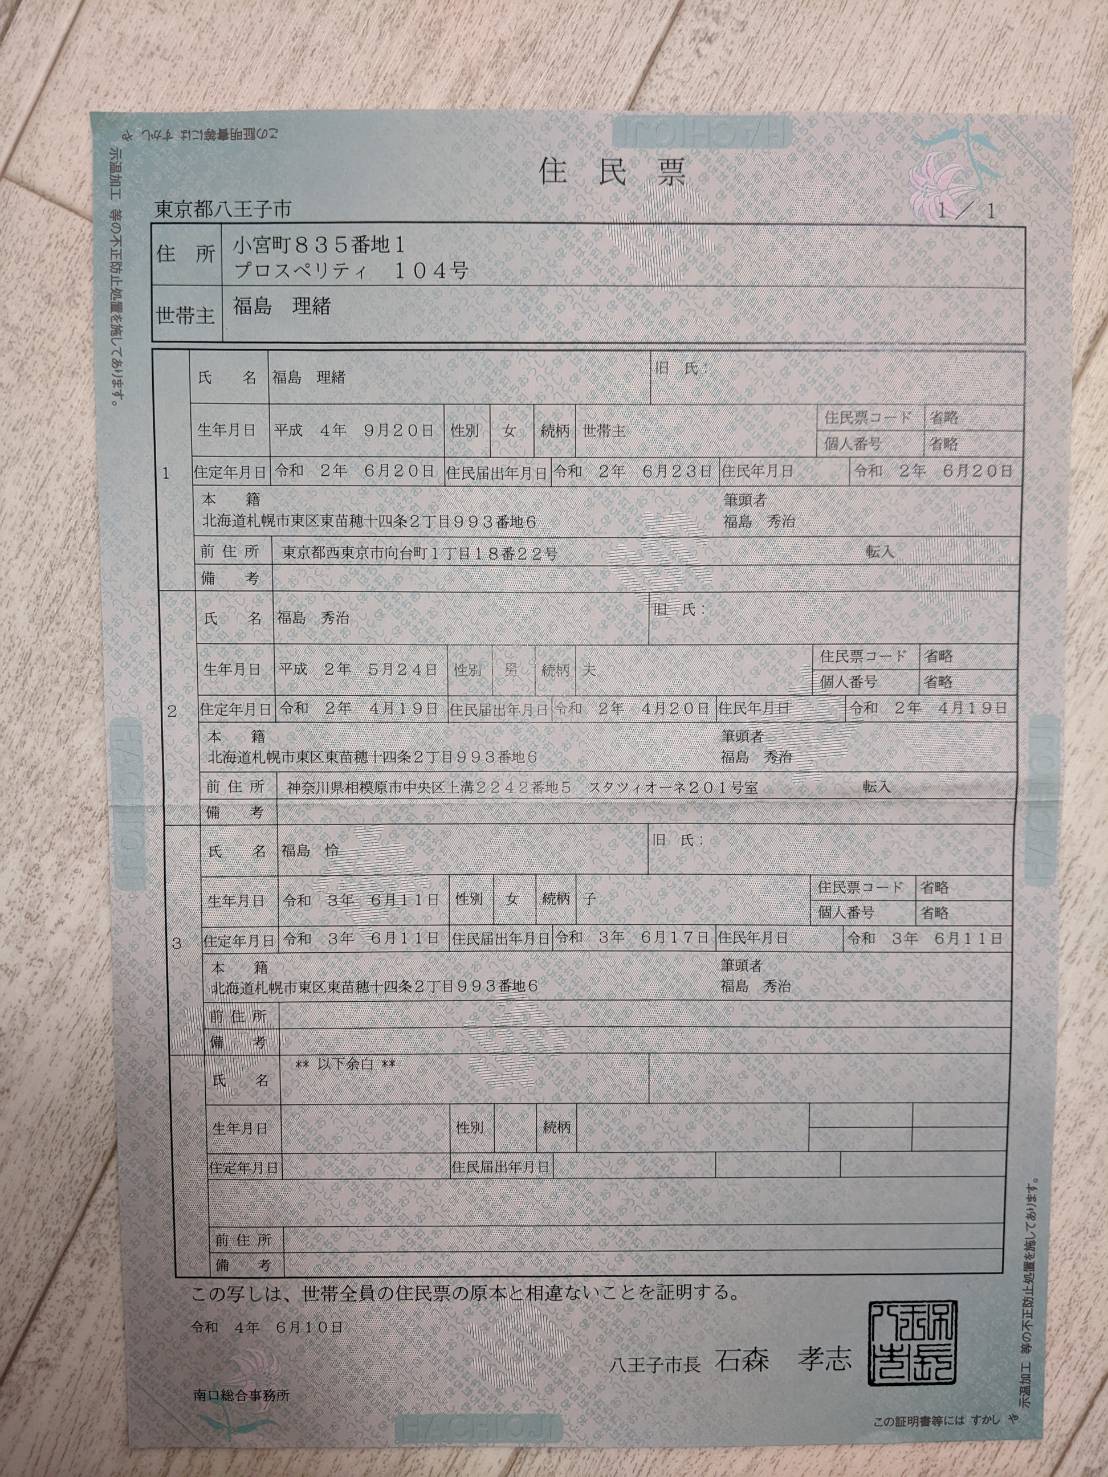 この証明書等には すかし や
示温加工 等の不正防止処置を施してあります。
HACHIOJI
住 民 票
東京都八王子市
1 ／ 1
住 所 小宮町835番地1
プロスペリティ 104号
世帯主 福島 理緒
1
氏 名 福島 理緒 旧 氏：
生年月日 平成 4年 9月20日 性別 女 続柄 世帯主 住民票コード 省略
個人番号 省略
住定年月日 令和 2年 6月20日 住民届出年月日 令和 2年 6月23日 住民年月日 令和 2年 6月20日
本 籍 筆頭者
北海道札幌市東区東苗穂十四条2丁目993番地6 福島 秀治
前 住 所 東京都西東京市向台町1丁目18番22号 転入
備 考
2
氏 名 福島 秀治 旧 氏：
生年月日 平成 2年 5月24日 性別 男 続柄 夫 住民票コード 省略
個人番号 省略
住定年月日 令和 2年 4月19日 住民届出年月日 令和 2年 4月20日 住民年月日 令和 2年 4月19日
本 籍 筆頭者
北海道札幌市東区東苗穂十四条2丁目993番地6 福島 秀治
前 住 所 神奈川県相模原市中央区上溝2242番地5 スタツィオーネ201号室 転入
備 考
3
氏 名 福島 怜 旧 氏：
生年月日 令和 3年 6月11日 性別 女 続柄 子 住民票コード 省略
個人番号 省略
住定年月日 令和 3年 6月11日 住民届出年月日 令和 3年 6月17日 住民年月日 令和 3年 6月11日
本 籍 筆頭者
北海道札幌市東区東苗穂十四条2丁目993番地6 福島 秀治
前 住 所
備 考
氏 名 ** 以下余白 **
生年月日 性別 続柄
住定年月日 住民届出年月日
前 住 所
備 考
この写しは、世帯全員の住民票の原本と相違ないことを証明する。
令和 4年 6月10日
八王子市長 石森 孝志
南口総合事務所
HACHIOJI
この証明書等には すかし や
示温加工 等の不正防止処置を施してあります。